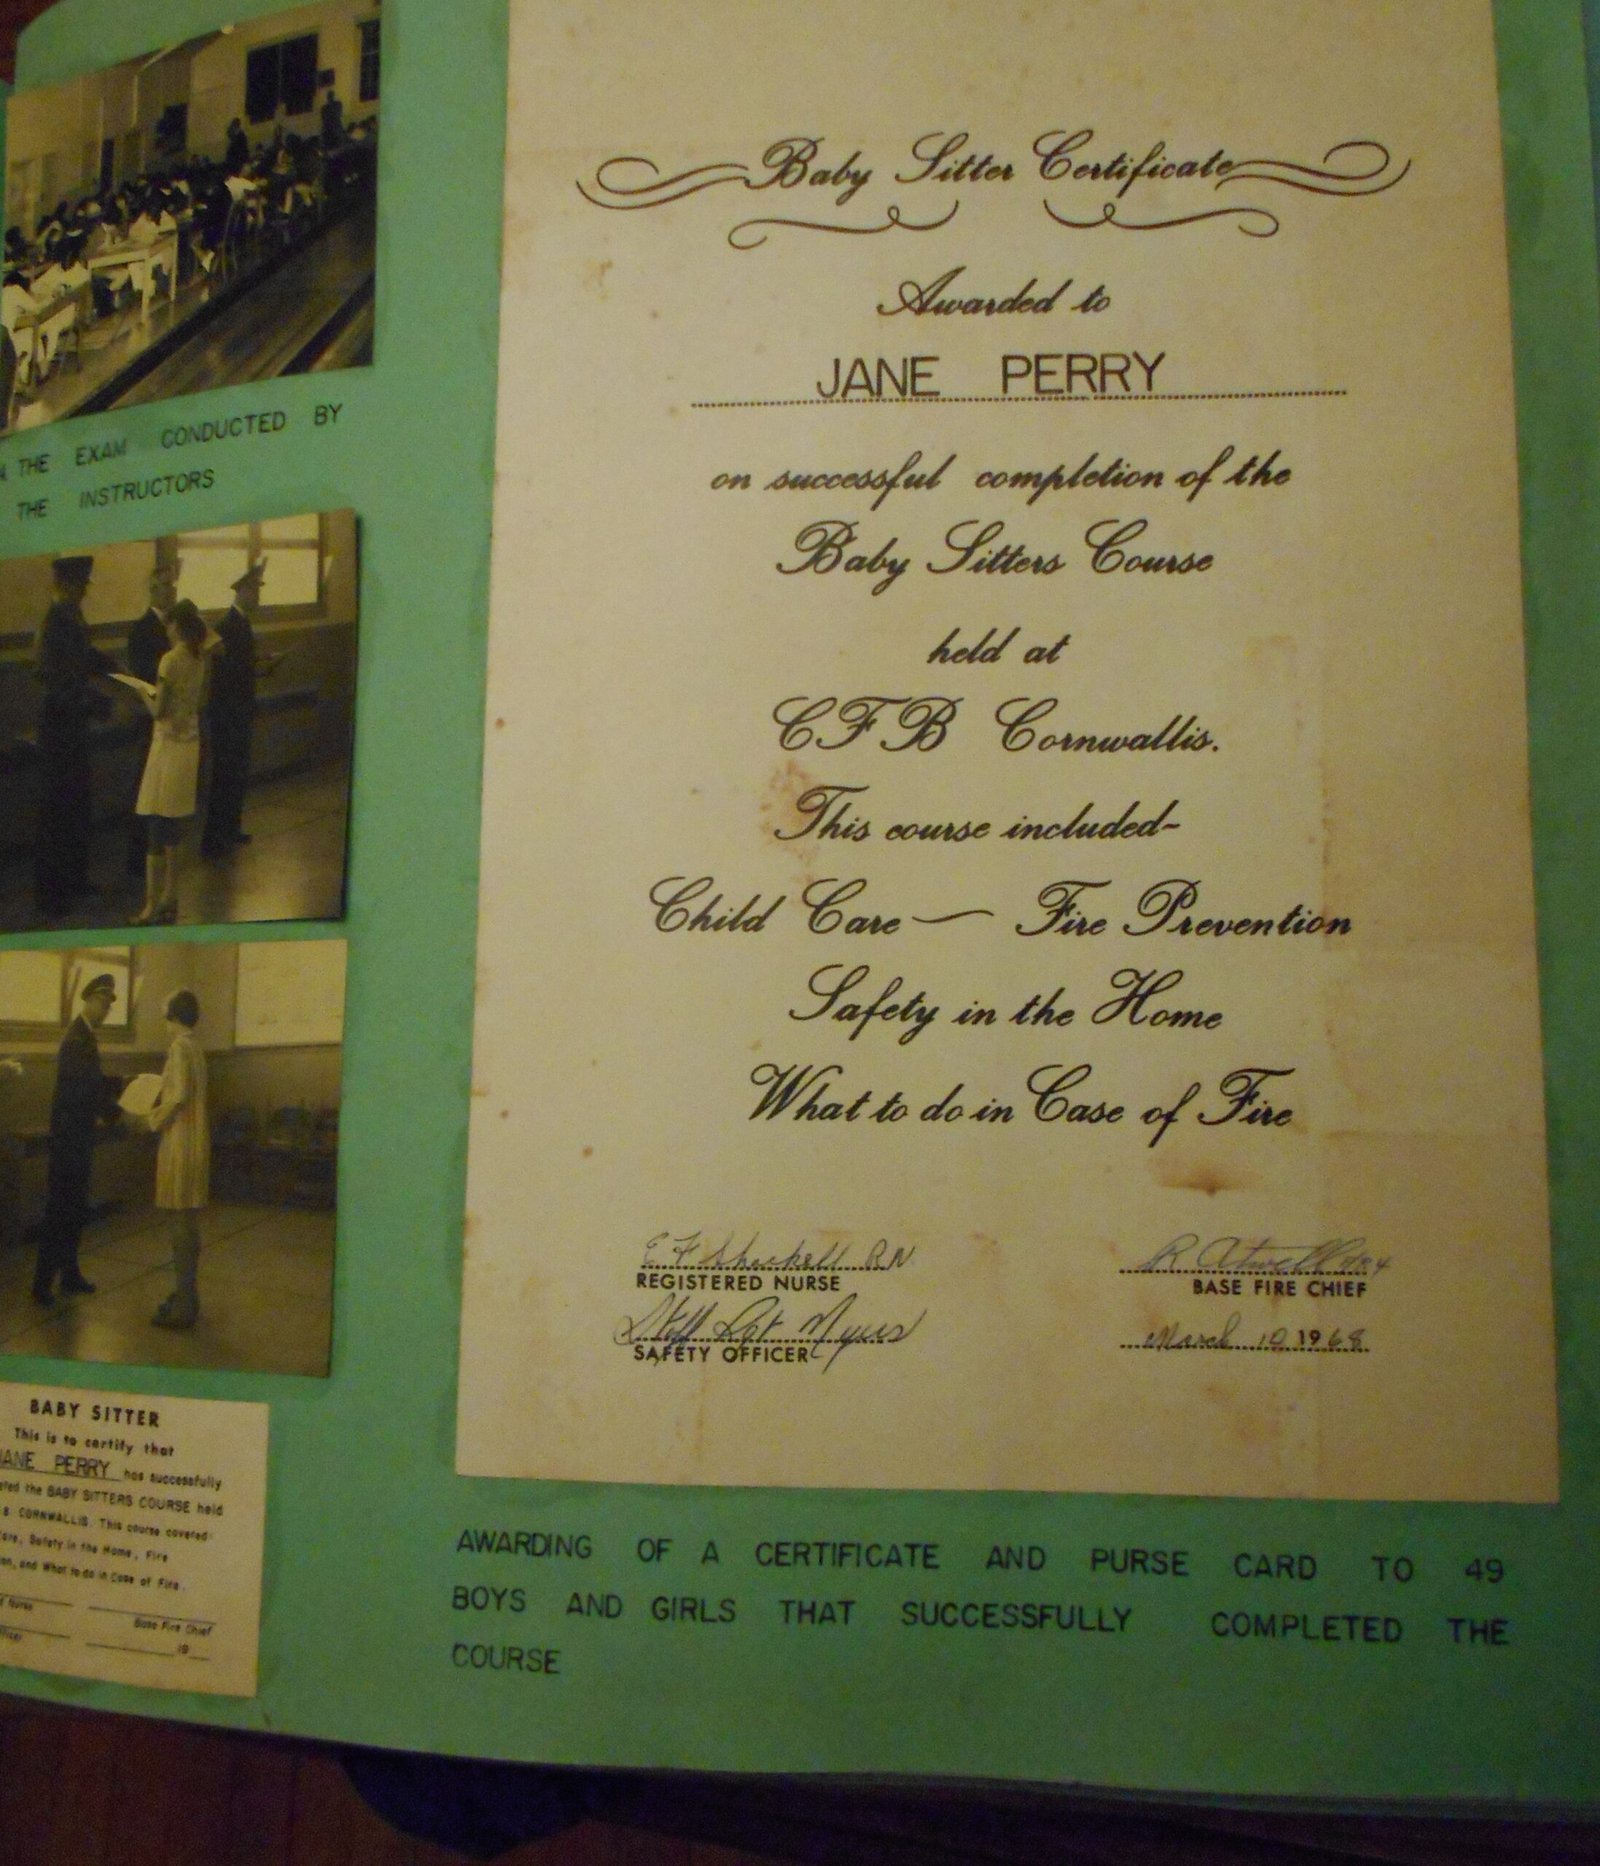 THE EXAM CONDUCTED BY
THE INSTRUCTORS
BABY SITTER
This is to certify that
JANE PERRY has successfully
the BABY SITTERS COURSE held
CORNWALLIS. This course covered:
Safety in the Home, Fire
and What to do in Case of Fire.
Base Fire Chief
19
Baby Sitter Certificate
Awarded to
JANE PERRY
on successful completion of the
Baby Sitters Course
held at
CFB Cornwallis.
This course included-
Child Care — Fire Prevention
Safety in the Home
What to do in Case of Fire
E F Shackell RN
REGISTERED NURSE
R Atwell
BASE FIRE CHIEF
Staff Sgt Myers
SAFETY OFFICER
March 10 1968
AWARDING OF A CERTIFICATE AND PURSE CARD TO 49
BOYS AND GIRLS THAT SUCCESSFULLY COMPLETED THE
COURSE